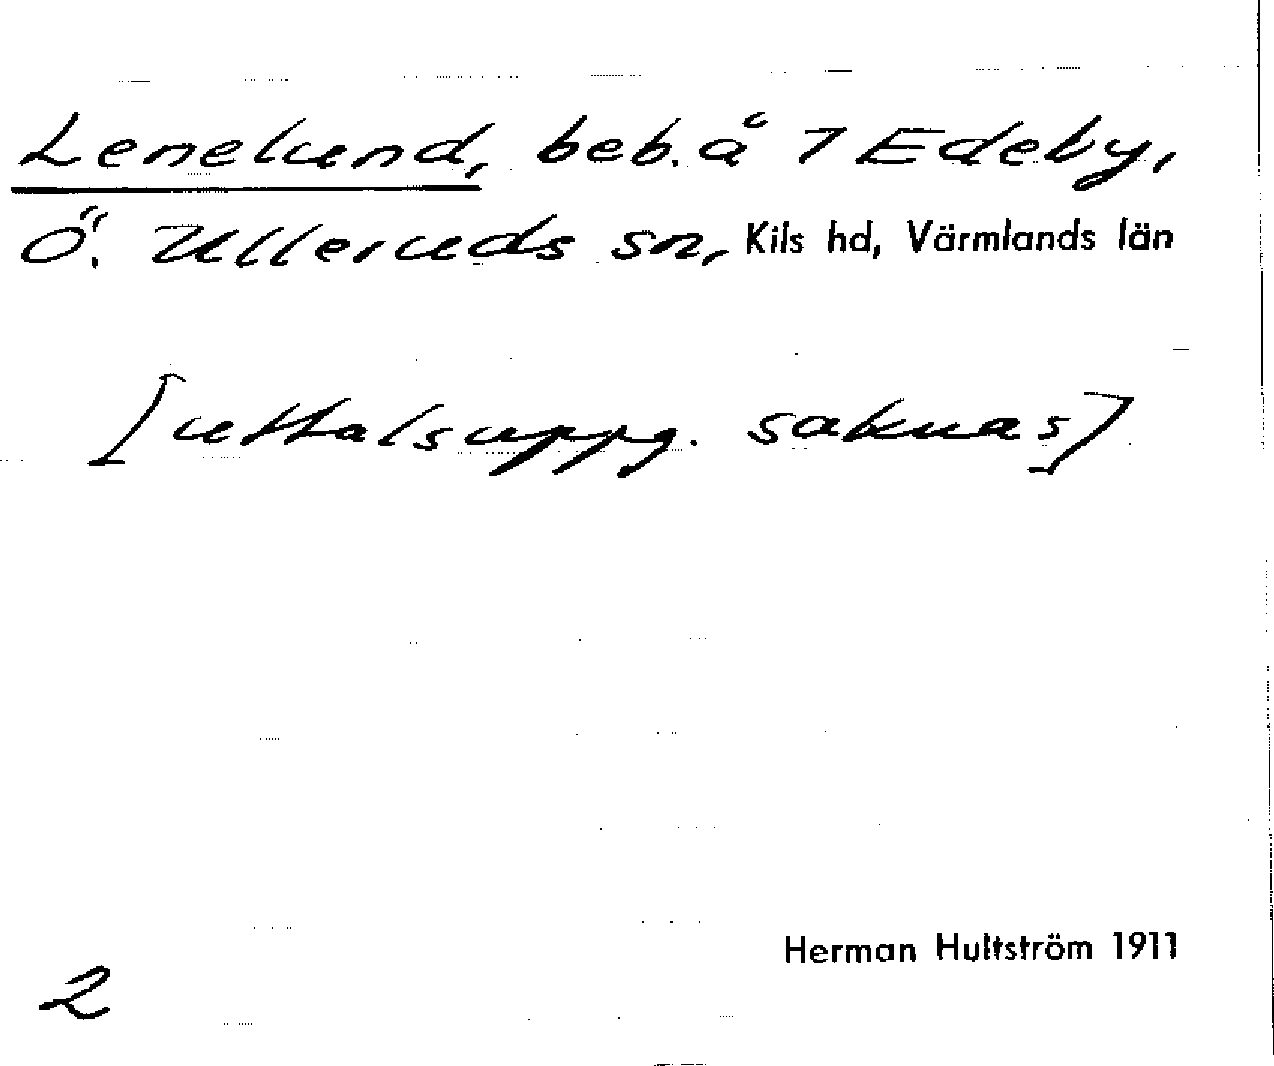 Lenelund, beb. å 7 Edeby,
Ö. Ulleruds sn, Kils hd, Värmlands län
[uttalsuppg. saknas]
Herman Hultström 1911
2